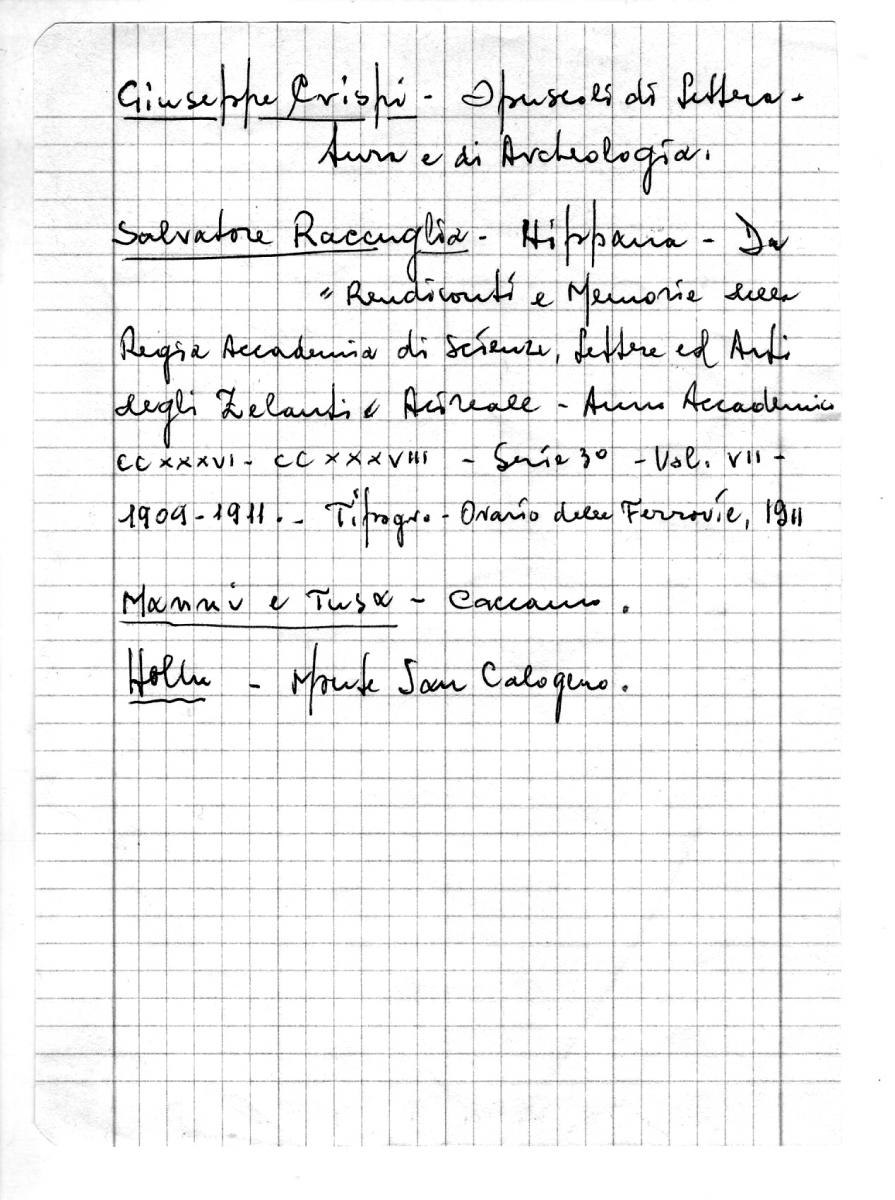 Giuseppe Crispi - Opuscoli di Lettera-
tura e di Archeologia.
Salvatore Raccuglia - Hippana - Da
"Rendiconti e Memorie della
Regia Accademia di Scienze, Lettere ed Arti
degli Zelanti Acireale - Anno Accademico
CCXXXVI - CCXXXVIII - Serie 3º - Vol. VII -
1909-1911. - Tipogr. - Orario delle Ferrovie, 1911
Manni e Tusa - Caccamo.
- Monte San Calogero.